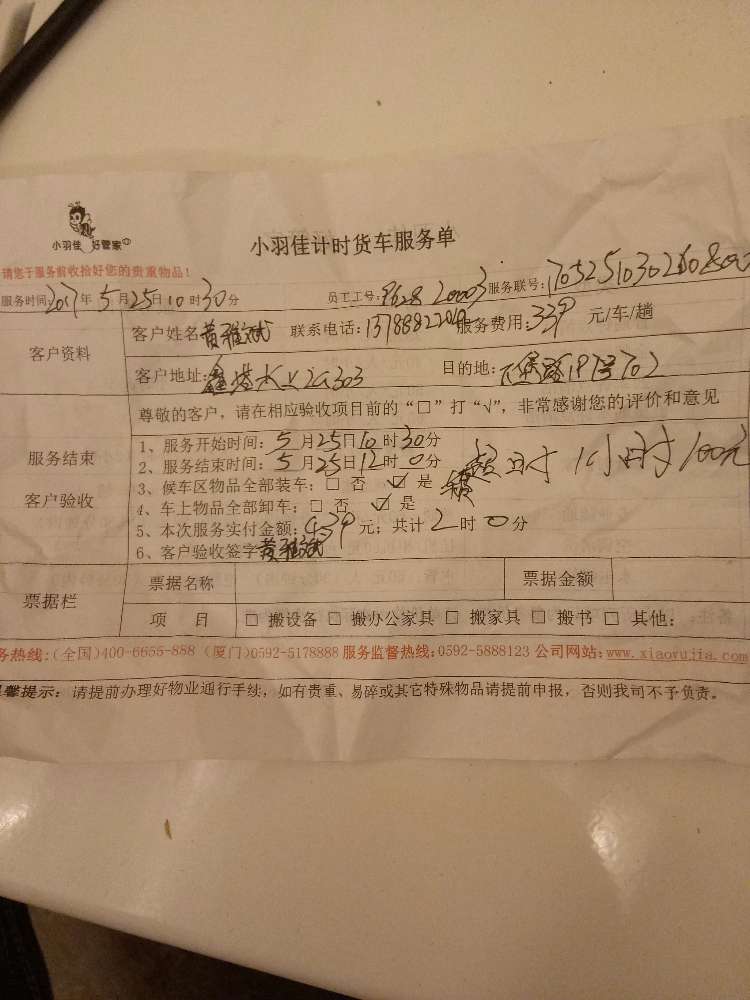 小羽佳 好管家
小羽佳计时货车服务单
请您于服务前收拾好您的贵重物品！
服务时间：2017年5月25日10时30分 员工工号： 20003 服务联号：
客户资料 客户姓名 黄雅斌 联系电话： 服务费用：339 元/车/趟
客户地址： 水上2G303 目的地： 197号702
尊敬的客户，请在相应验收项目前的“□”打“√”，非常感谢您的评价和意见
服务结束
客户验收
1、服务开始时间：5月25日10时30分
2、服务结束时间：5月25日12时0分
3、候车区物品全部装车：□ 否 ☑ 是 超时1小时100元
4、车上物品全部卸车：□ 否 ☑ 是
5、本次服务实付金额：439元；共计2时0分
6、客户验收签字 黄雅斌
票据栏 票据名称 票据金额
项 目 □ 搬设备 □ 搬办公家具 □ 搬家具 □ 搬书 □ 其他：
务热线：(全国)400-6655-888 (厦门)0592-5178888 服务监督热线：0592-5888123 公司网站：www.xiaoyujia.com
馨提示：请提前办理好物业通行手续，如有贵重、易碎或其它特殊物品请提前申报，否则我司不予负责。